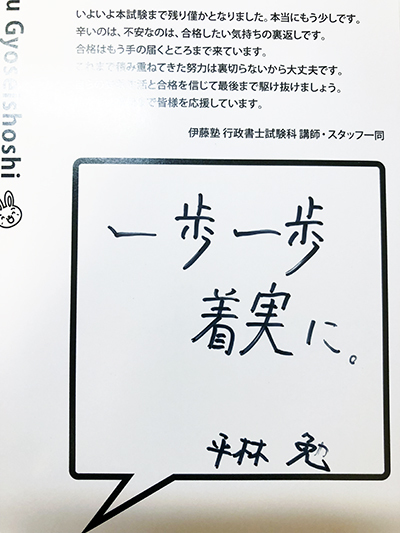 いよいよ本試験まで残り僅かとなりました。本当にもう少しです。
辛いのは、不安なのは、合格したい気持ちの裏返しです。
合格はもう手の届くところまで来ています。
まで積み重ねてきた努力は裏切らないから大丈夫です。
と合格を信じて最後まで駆け抜けましょう。
で皆様を応援しています。
伊藤塾 行政書士試験科 講師・スタッフ一同
u Gyoseishoshi
一歩一歩
着実に。
平林 勉